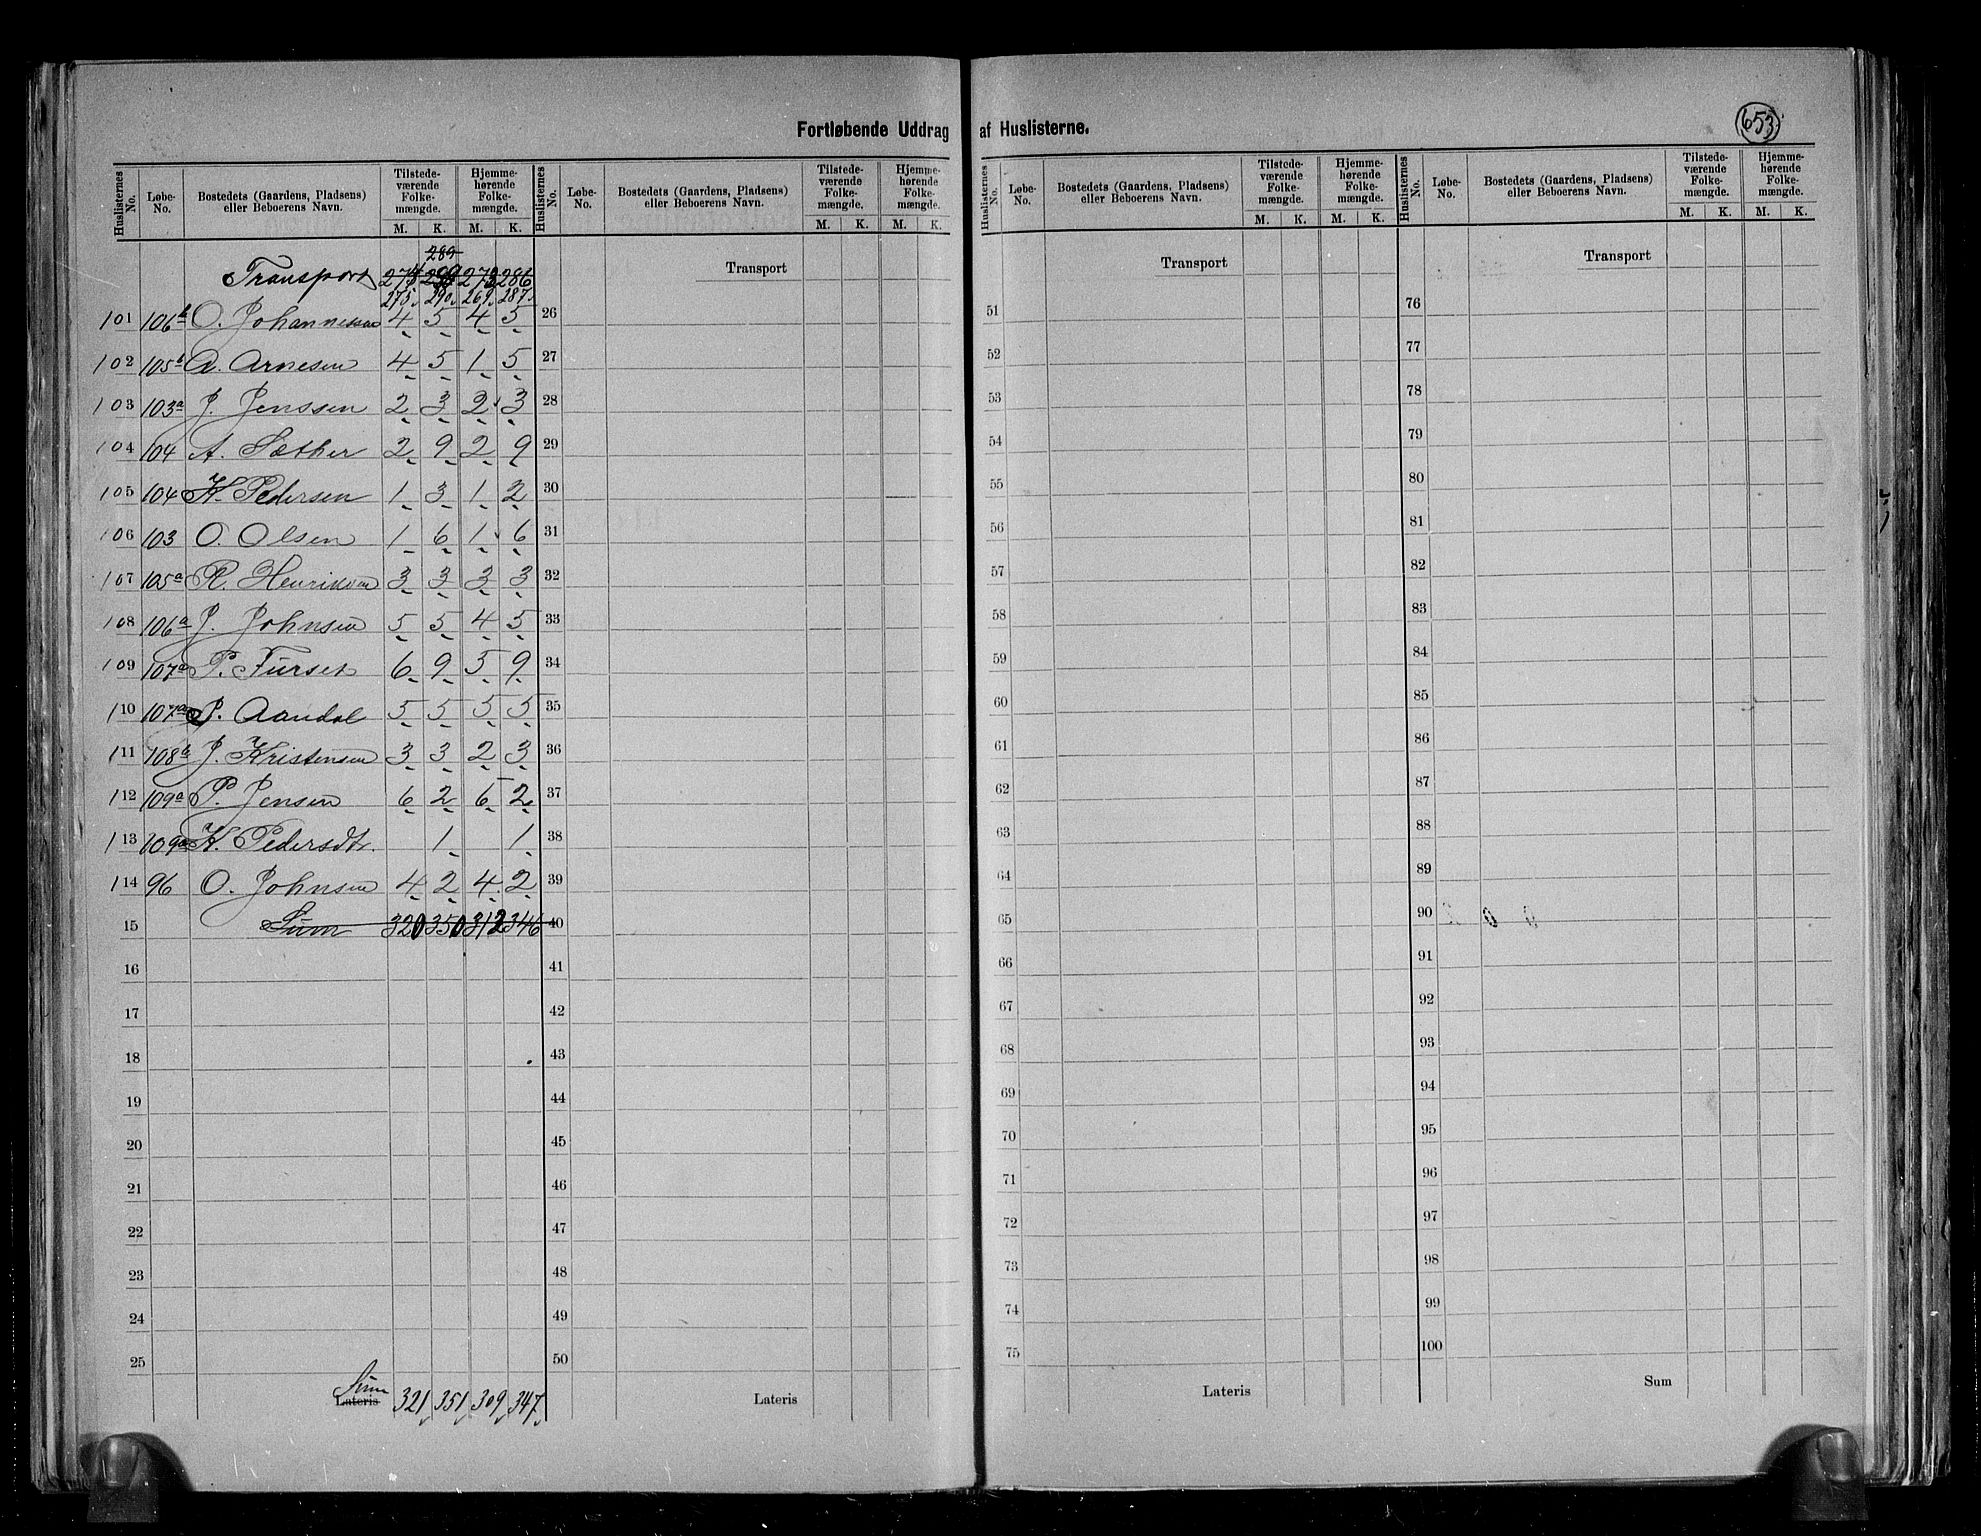 653
Fortløbende Uddrag af Huslisterne.
Huslisternes No. Løbe-No. Bostedets (Gaardens, Pladsens) eller Beboerens Navn. Tilstede-værende Folke-mængde. M. K. Hjemme-hørende Folke-mængde. M. K.
Huslisternes No. Løbe-No. Bostedets (Gaardens, Pladsens) eller Beboerens Navn. Tilstede-værende Folke-mængde. M. K. Hjemme-hørende Folke-mængde. M. K.
Huslisternes No. Løbe-No. Bostedets (Gaardens, Pladsens) eller Beboerens Navn. Tilstede-værende Folke-mængde. M. K. Hjemme-hørende Folke-mængde. M. K.
Huslisternes No. Løbe-No. Bostedets (Gaardens, Pladsens) eller Beboerens Navn. Tilstede-værende Folke-mængde. M. K. Hjemme-hørende Folke-mængde. M. K.
289
Transport 286
275 290 269 287
101 106b O. Johannessen 4 5 4 5
102 105b A. Arnesen 4 5 1 5
103 103a J. Jenssen 2 3 2 3
104 104 A. Sæther 2 9 2 9
105 104 K. Pedersen 1 3 1 2
106 103 O. Olsen 1 6 1 6
107 105a R. Henriksen 3 3 3 3
108 106a J. Johnsen 5 5 4 5
109 107a P. Furset 6 9 5 9
110 107a P. Aandal 5 5 5 5
111 108a J. Kristensen 3 3 2 3
112 109a P. Jensen 6 2 6 2
113 109a K. Pedersdtr. 1 1
114 96 O. Johnsen 4 2 4 2
15 Sum 320 350 312 346
16
17
18
19
20
21
22
23
24
25
Sum
Lateris 321 351 309 347
Transport
26
27
28
29
30
31
32
33
34
35
36
37
38
39
40
41
42
43
44
45
46
47
48
49
50
Lateris
Transport
51
52
53
54
55
56
57
58
59
60
61
62
63
64
65
66
67
68
69
70
71
72
73
74
75
Lateris
Transport
76
77
78
79
80
81
82
83
84
85
86
87
88
89
90
91
92
93
94
95
96
97
98
99
100
Sum